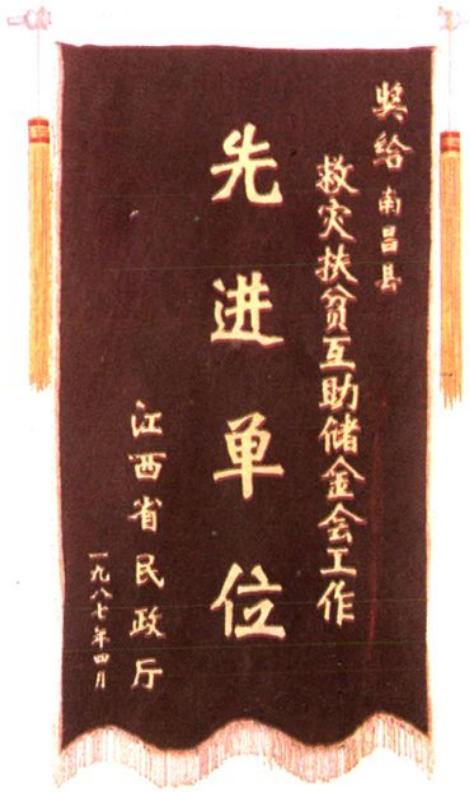 奖给南昌县
救灾扶贫互助储金会工作
先进单位
江西省民政厅
一九八七年四月